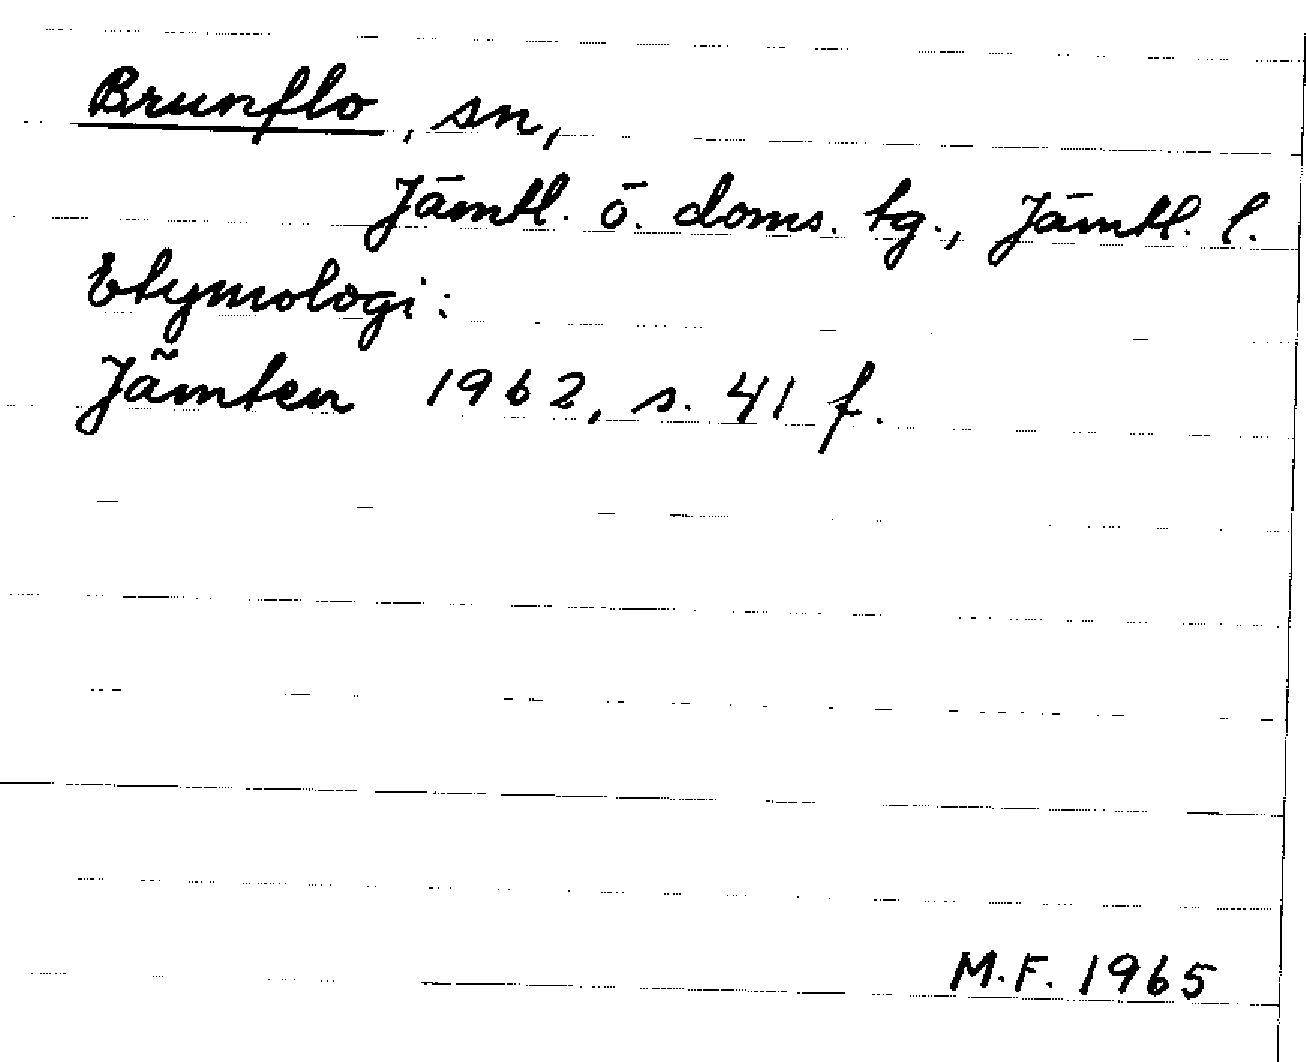 Brunflo, sn,
Jämtl. ö. doms. tg., Jämtl. l.
Etymologi:
Jämten 1962, s. 41 f.
M.F. 1965